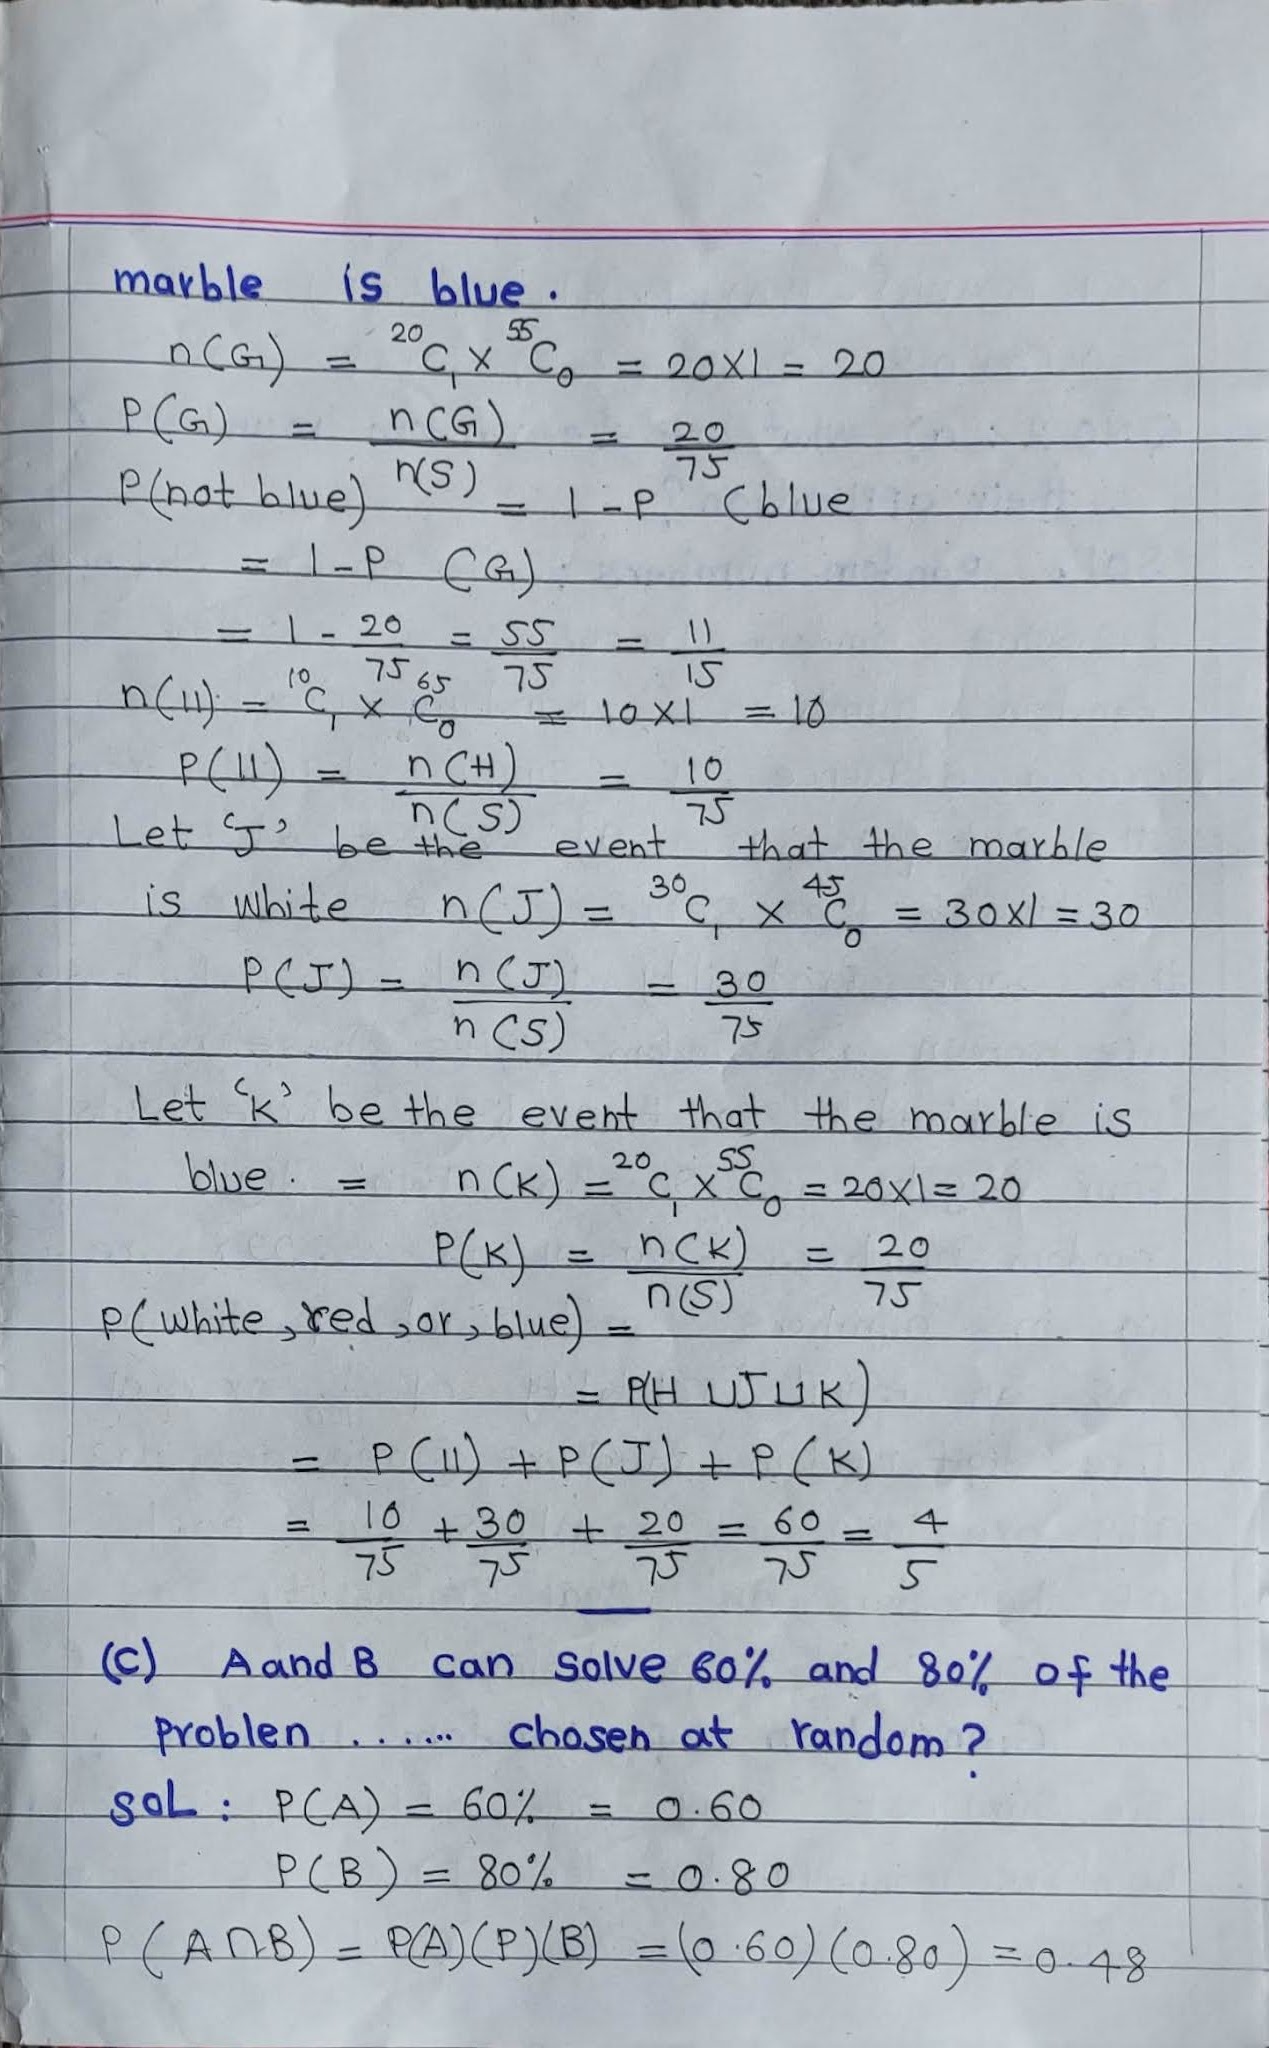 marble is blue.
n(G) = ²⁰C₁ x ⁵⁵C₀ = 20X1 = 20
P(G) = n(G)/n(S) = 20/75
P(not blue) = 1-P (blue
= 1-P (G)
= 1 - 20/75 = 55/75 = 11/15
n(11) = ¹⁰C₁ x ⁶⁵C₀ = 10X1 = 10
P(11) = n(H)/n(S) = 10/75
Let 'J' be the event that the marble
is white n(J) = ³⁰C₁ x ⁴⁵C₀ = 30x1 = 30
P(J) = n(J)/n(S) = 30/75
Let 'K' be the event that the marble is
blue. = n(K) = ²⁰C₁ x ⁵⁵C₀ = 20x1 = 20
P(K) = n(K)/n(S) = 20/75
P(white, red, or, blue) =
= P(H ∪ J ∪ K)
= P(11) + P(J) + P(K)
= 10/75 + 30/75 + 20/75 = 60/75 = 4/5
(C) A and B can solve 60% and 80% of the
problen ...... chosen at random?
SOL : P(A) = 60% = 0.60
P(B) = 80% = 0.80
P(A∩B) = P(A)(P)(B) = (0.60)(0.80) = 0.48